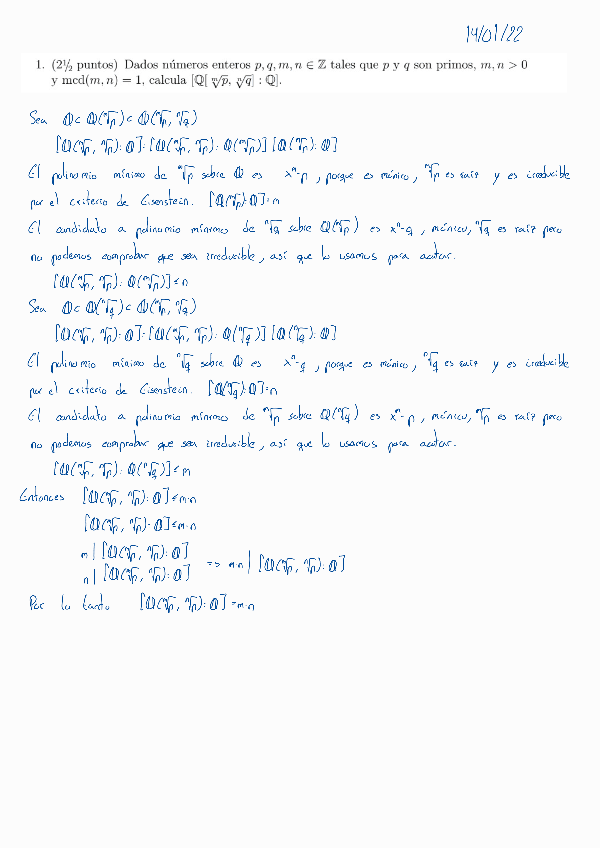 14/01/22
1. (2½ puntos) Dados números enteros p, q, m, n ∈ ℤ tales que p y q son primos, m, n > 0
y mcd(m, n) = 1, calcula [ℚ[ᵐ√p, ⁿ√q] : ℚ].
Sea ℚ⊂ℚ(ᵐ√p)⊂ℚ(ᵐ√p, ⁿ√q)
[ℚ(ᵐ√p, ⁿ√p):ℚ]=[ℚ(ᵐ√p, ⁿ√p):ℚ(ᵐ√p)][ℚ(ᵐ√p):ℚ]
El polinomio mínimo de ᵐ√p sobre ℚ es xᵐ-p, porque es mónico, ᵐ√p es raíz y es irreducible
por el criterio de Eisenstein. [ℚ(ᵐ√p):ℚ]=m
El candidato a polinomio mínimo de ⁿ√q sobre ℚ(ᵐ√p) es xⁿ-q, mónico, ⁿ√q es raíz pero
no podemos comprobar que sea irreducible, así que lo usamos para acotar.
[ℚ(ᵐ√p, ⁿ√p):ℚ(ᵐ√p)]≤n
Sea ℚ⊂ℚ(ⁿ√q)⊂ℚ(ᵐ√p, ⁿ√q)
[ℚ(ᵐ√p, ⁿ√p):ℚ]=[ℚ(ᵐ√p, ⁿ√p):ℚ(ⁿ√q)][ℚ(ⁿ√q):ℚ]
El polinomio mínimo de ⁿ√q sobre ℚ es xⁿ-q, porque es mónico, ⁿ√q es raíz y es irreducible
por el criterio de Eisenstein. [ℚ(ⁿ√q):ℚ]=n
El candidato a polinomio mínimo de ᵐ√p sobre ℚ(ⁿ√q) es xᵐ-p, mónico, ᵐ√p es raíz pero
no podemos comprobar que sea irreducible, así que lo usamos para acotar.
[ℚ(ᵐ√p, ⁿ√p):ℚ(ⁿ√q)]≤m
Entonces [ℚ(ᵐ√p, ⁿ√p):ℚ]≤m·n
[ℚ(ᵐ√p, ⁿ√p):ℚ]≤m·n
m | [ℚ(ᵐ√p, ⁿ√p):ℚ]
n | [ℚ(ᵐ√p, ⁿ√p):ℚ] => m·n | [ℚ(ᵐ√p, ⁿ√p):ℚ]
Por lo tanto [ℚ(ᵐ√p, ⁿ√p):ℚ]=m·n